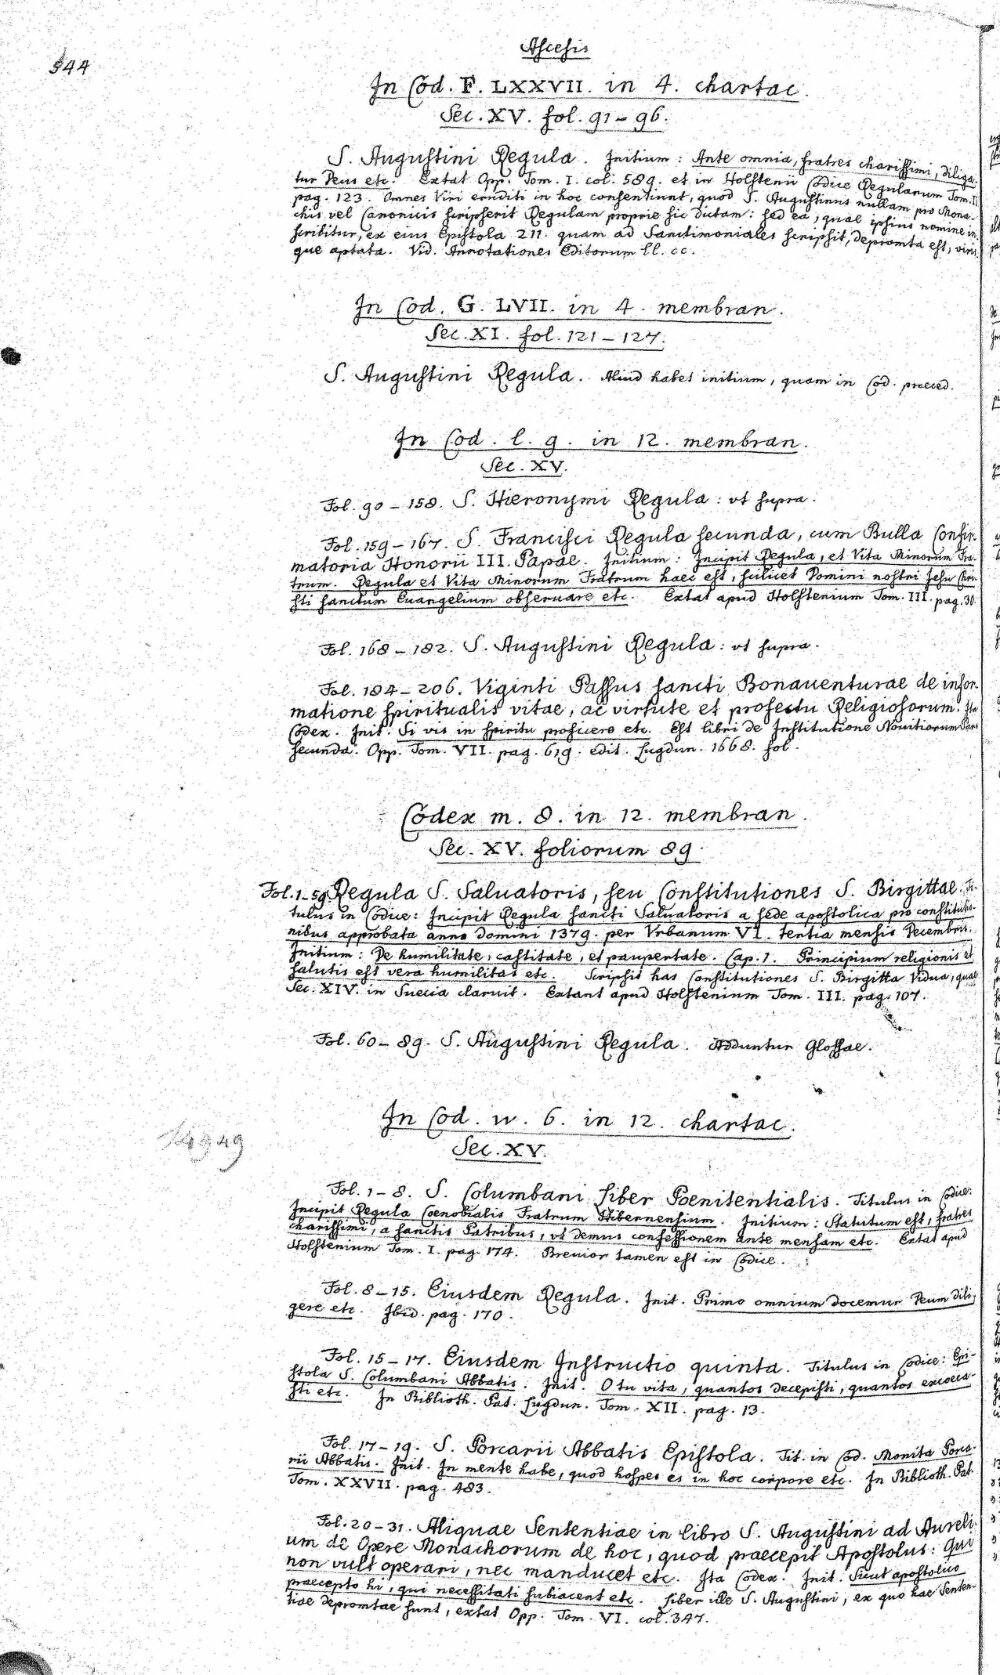 Ascesis
544
In Cod. F. LXXVII. in 4. chartac.
Sec. XV. fol. 91-96.
S. Augustini Regula. Initium: Ante omnia, fratres charissimi, diliga-
tur Deus etc. Extat Opp. Tom. I. col. 589. et in Holstenii Codice Regularum Tom. II.
pag. 123. Omnes Viri eruditi in hoc consentiunt, quod S. Augustinus nullam pro Mona-
chis vel Canonicis scripserit Regulam proprie sic dictam: sed ea, quae ipsius nomine in-
scribitur, ex eius Epistola 211. quam ad Sanctimoniales scripsit, depromta est, viris-
que aptata. Vid. Annotationes Editorum ll. cc.
In Cod. G. LVII. in 4. membran.
Sec. XI. fol. 121-127.
S. Augustini Regula. Aliud habet initium, quam in Cod. praeced.
In Cod. l. g. in 12. membran.
Sec. XV.
Fol. 90-158. S. Hieronymi Regula: vt supra.
Fol. 159-167. S. Francisci Regula secunda, cum Bulla Confir-
matoria Honorii III. Papae. Initium: Incipit Regula, et Vita Minorum Fra-
trum. Regula et Vita Minorum Fratrum haec est, scilicet Domini nostri Jesu Chri-
sti sanctum Euangelium obseruare etc. Extat apud Holstenium Tom. III. pag. 30.
Fol. 168-182. S. Augustini Regula: vt supra.
Fol. 184-206. Viginti Passus sancti Bonauenturae de infor-
matione spiritualis vitae, ac virtute et profectu Religiosorum. Ita
Codex. Init. Si vis in spiritu proficere etc. Est libri de Institutione Nouitiorum Pars
secunda. Opp. Tom. VII. pag. 619. edit. Lugdun. 1668. fol.
Codex m. 8. in 12. membran.
Sec. XV. foliorum 89.
Fol. 1-59. Regula S. Saluatoris, seu Constitutiones S. Birgittae. Ti-
tulus in Codice: Incipit Regula sancti Saluatoris a sede apostolica pro constitutio-
nibus approbata anno domini 1379. per Vrbanum VI. tertia mensis Decembris.
Initium: De humilitate, castitate, et paupertate. Cap. 1. Principium religionis et
salutis est vera humilitas etc. Scripsit has Constitutiones S. Birgitta Vidua, quae
Sec. XIV. in Suecia claruit. Extant apud Holstenium Tom. III. pag. 107.
Fol. 60-89. S. Augustini Regula. Adduntur Glossae.
In Cod. w. 6. in 12. chartac.
14949
Sec. XV.
Fol. 1-8. S. Columbani Liber Poenitentialis. Titulus in Codice:
Incipit Regula Coenobialis Fratrum Hibernensium. Initium: Statutum est, fratres
charissimi, a sanctis Patribus, vt demus confessionem ante mensam etc. Extat apud
Holstenium Tom. I. pag. 174. Brevior tamen est in Codice.
Fol. 8-15. Eiusdem Regula. Init. Primo omnium docemur Deum dili-
gere etc. Ibid. pag. 170.
Fol. 15-17. Eiusdem Instructio quinta. Titulus in Codice: Epi-
stola S. Columbani Abbatis. Init. O tu vita, quantos decepisti, quantos excoeca-
sti etc. In Biblioth. Pat. Lugdun. Tom. XII. pag. 13.
Fol. 17-19. S. Porcarii Abbatis Epistola. Tit. in Cod. Monita Porca-
rii Abbatis. Init. In mente habe, quod hospes es in hoc corpore etc. In Biblioth. Pat.
Tom. XXVII. pag. 483.
Fol. 20-31. Aliquae Sententiae in libro S. Augustini ad Aureli-
um de Opere Monachorum de hoc, quod praecepit Apostolus: Qui
non vult operari, nec manducet etc. Ita Codex. Init. Sicut apostolico
praecepto hi, qui necessitati subiacent etc. Liber ille S. Augustini, ex quo hae Senten-
tiae depromtae sunt, extat Opp. Tom. VI. col. 347.